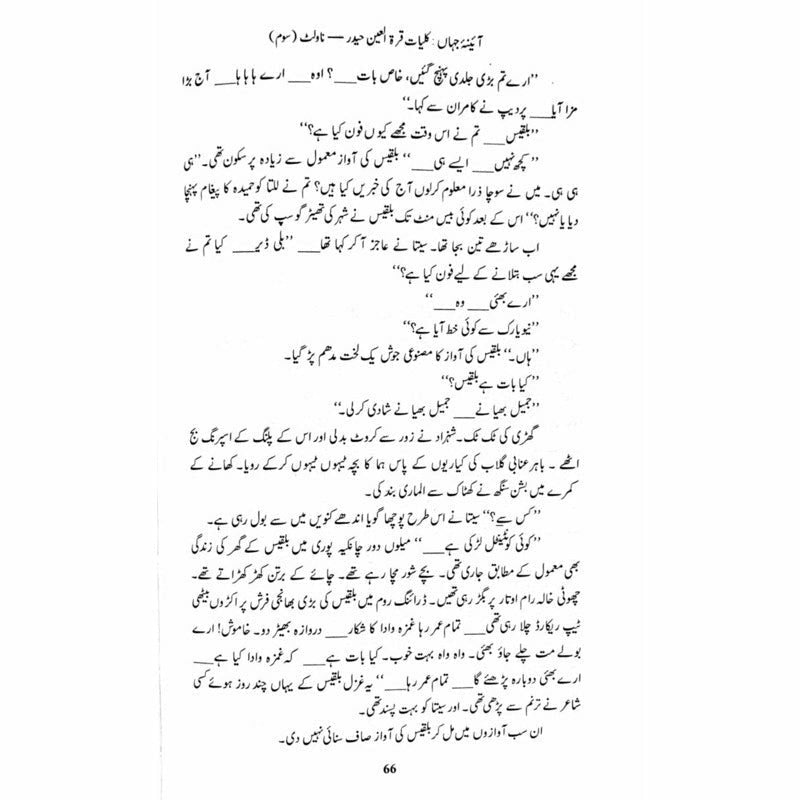 آئینۂ جہاں : کلیات قرۃ العین حیدر — ناولٹ (سوم)
’’ارے تم بڑی جلدی پہنچ گئیں، خاص بات___ ؟ اوہ___ ارے ہا ہا ہا___ آج بڑا
مزا آیا___ پردیپ نے کامران سے کہا۔‘‘
’’بلقیس___ تم نے اس وقت مجھے کیوں فون کیا ہے؟‘‘
’’ کچھ نہیں___ ایسے ہی___‘‘ بلقیس کی آواز معمول سے زیادہ پرسکون تھی۔ ’’ہی
ہی ہی۔ میں نے سوچا ذرا معلوم کرلوں آج کی خبریں کیا ہیں؟ تم نے للتا کو حمیدہ کا پیغام پہنچا
دیا یا نہیں؟‘‘ اس کے بعد کوئی بیس منٹ تک بلقیس نے شہر کی تھیٹر گوسپ کی تھی۔
اب ساڑھے تین بجا تھا۔ سیتا نے عاجز آ کر کہا تھا___ ’’بلی ڈیر___ کیا تم نے
مجھے یہی سب بتلانے کے لیے فون کیا ہے؟‘‘
’’ارے بھئی___ وہ___‘‘
’’نیویارک سے کوئی خط آیا ہے؟‘‘
’’ہاں۔‘‘ بلقیس کی آواز کا مصنوعی جوش یک لخت مدھم پڑ گیا۔
’’کیا بات ہے بلقیس؟‘‘
’’جمیل بھیا نے___ جمیل بھیا نے شادی کر لی۔‘‘
گھڑی کی ٹک ٹک۔ شہزاد نے زور سے کروٹ بدلی اور اس کے پلنگ کے اسپرنگ بج
اٹھے ۔ باہر عنابی گلاب کی کیاریوں کے پاس ہما کا بچہ ٹیہوں ٹیہوں کرکے رویا۔ کھانے کے
کمرے میں بشن سنگھ نے کھٹاک سے الماری بند کی۔
’’کس سے؟‘‘ سیتا نے اس طرح پوچھا گویا اندھے کنویں میں سے بول رہی ہے۔
’’کوئی کونٹینٹل لڑکی ہے___‘‘ میلوں دور چانکیہ پوری میں بلقیس کے گھر کی زندگی
بھی معمول کے مطابق جاری تھی۔ بچے شور مچا رہے تھے۔ چائے کے برتن کھڑ کھڑاتے تھے۔
چھوٹی خالہ رام اوتار پر بگڑ رہی تھیں۔ ڈرائنگ روم میں بلقیس کی بڑی بھانجی فرش پر اکڑوں بیٹھی
ٹیپ ریکارڈ چلا رہی تھی___ تمام عمر رہا غمزہ وادا کا شکار___ دروازہ بھیڑ دو۔ خاموش! ارے
بولے مت چلے جاؤ بھئی۔ واہ واہ بہت خوب۔ کیا بات ہے___ کہ غمزہ وادا کیا ہے___
ارے بھئی دوبارہ پڑھئے گا___ تمام عمر رہا___‘‘ یہ غزل بلقیس کے یہاں چند روز ہوئے کسی
شاعر نے ترنم سے پڑھی تھی۔ اور سیتا کو بہت پسند تھی۔
ان سب آوازوں میں مل کر بلقیس کی آواز صاف سنائی نہیں دی۔
66